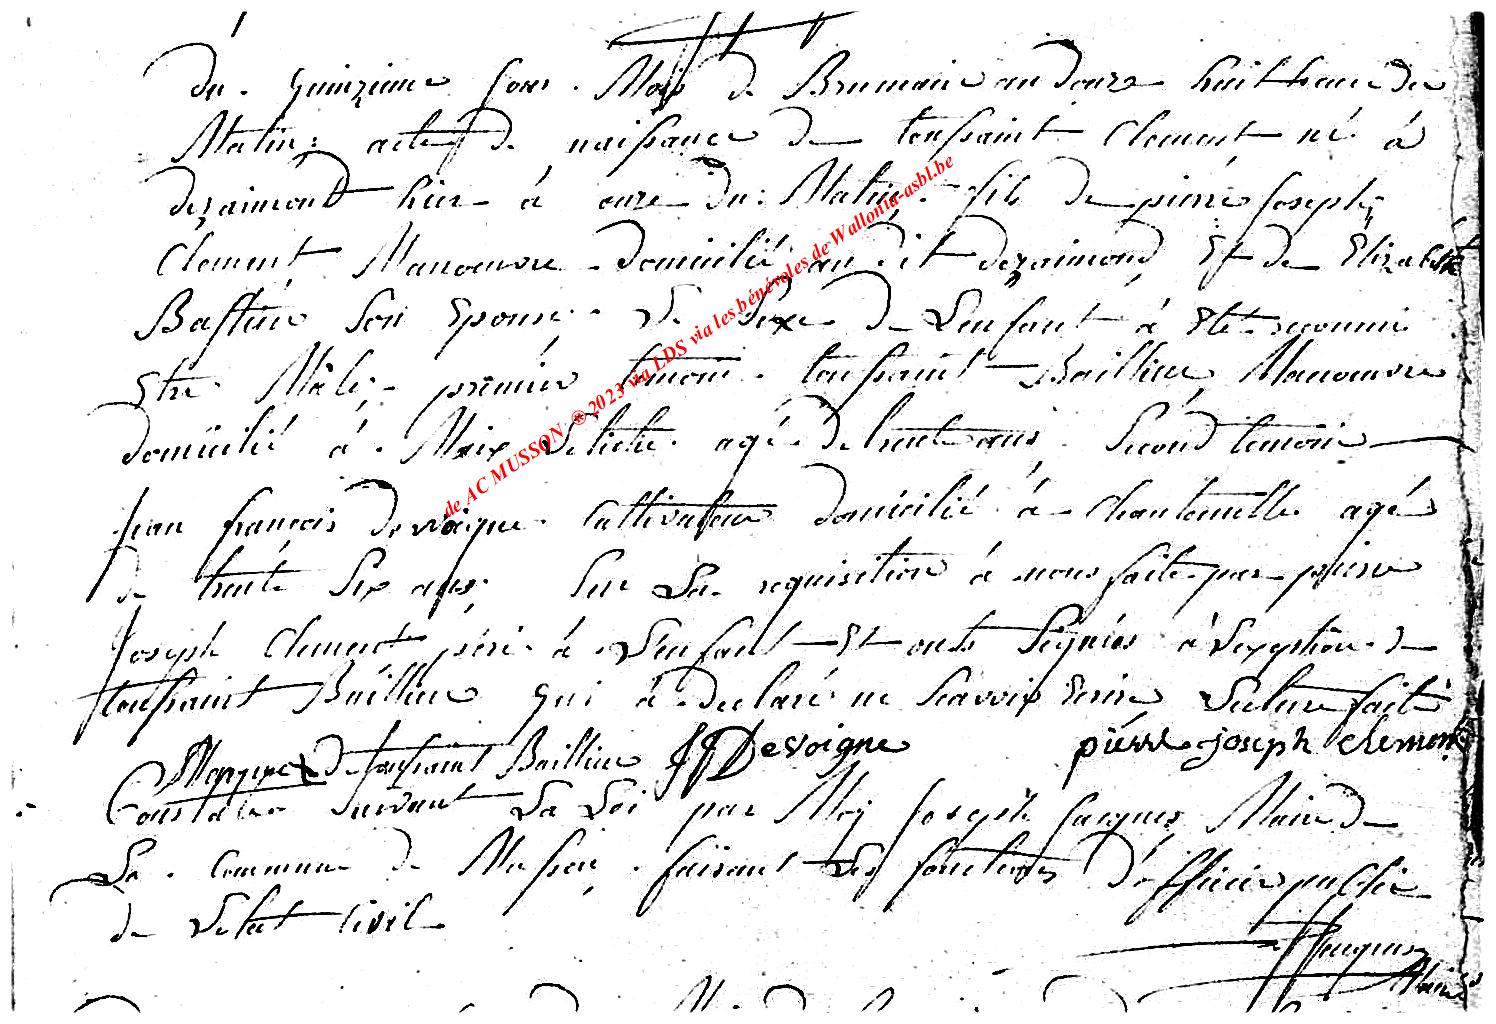 du quinzieme jour Mois de Brumaire an douze huit heure du
Matin: acte de naissance de toussaint Clement né à
dezaimont hier à onze du Matin fils de pierre joseph
Clement Manoeuvre domicilié au dit dezaimond Et de Elizabeth
Bastin Son Epouse Le Sexe de L'enfant à Eté reconnu
Etre Mâle, premier temoin toussaint Baillieu Manoeuvre
domicilié à Maix Letiche agé de trente ans Second temoin
jean françois devoigne Cultivateur domicilié à Chantemelle agé
de trente Six ans, Sur La requisition à nous faite par pierre
Joseph Clement pere à L'enfant Et onts Signés à L'exeption de
toussaint Baillieu qui à declaré ne Scavoir Ecrire Lecture faite
Marque x De toussaint Baillieu JF Devoigne pierre joseph clement
Constaté Suivant La Loi par Moy joseph jacques Maire de
La Commune de Musson faisant Les fonctions d'officier public
de L'etat Civil
JJacques
Maire
de AC MUSSON ® 2023 via LDS via les bénévoles de Wallonia-asbl.be